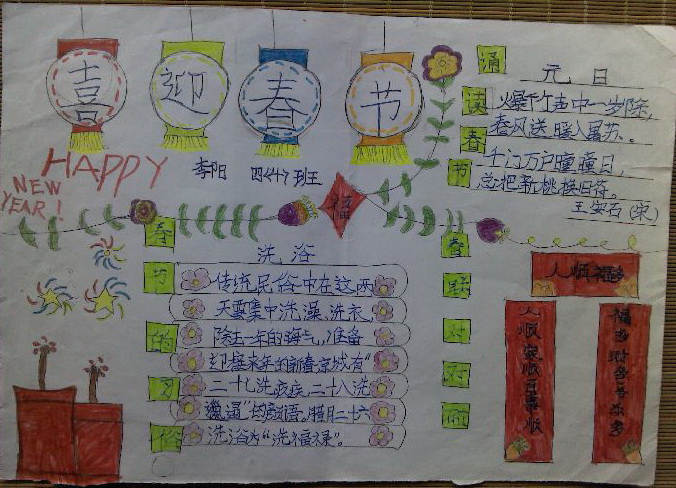 喜迎春节
HAPPY
NEW
YEAR!
李阳 四〈4〉班
诵读春节
元日
爆竹声中一岁除,
春风送暖入屠苏。
千门万户曈曈日,
总把新桃换旧符。
王安石(宋)
春节的习俗
洗浴
传统民俗中在这两
天要集中洗澡、洗衣,
除去一年的晦气,准备
迎接来年的新春,京城有"
二十七洗疚疾,二十八洗
邋遢"的谚语。腊月二十六
洗浴为"洗福禄"。
春联对对
人顺福多
人顺家顺百事顺